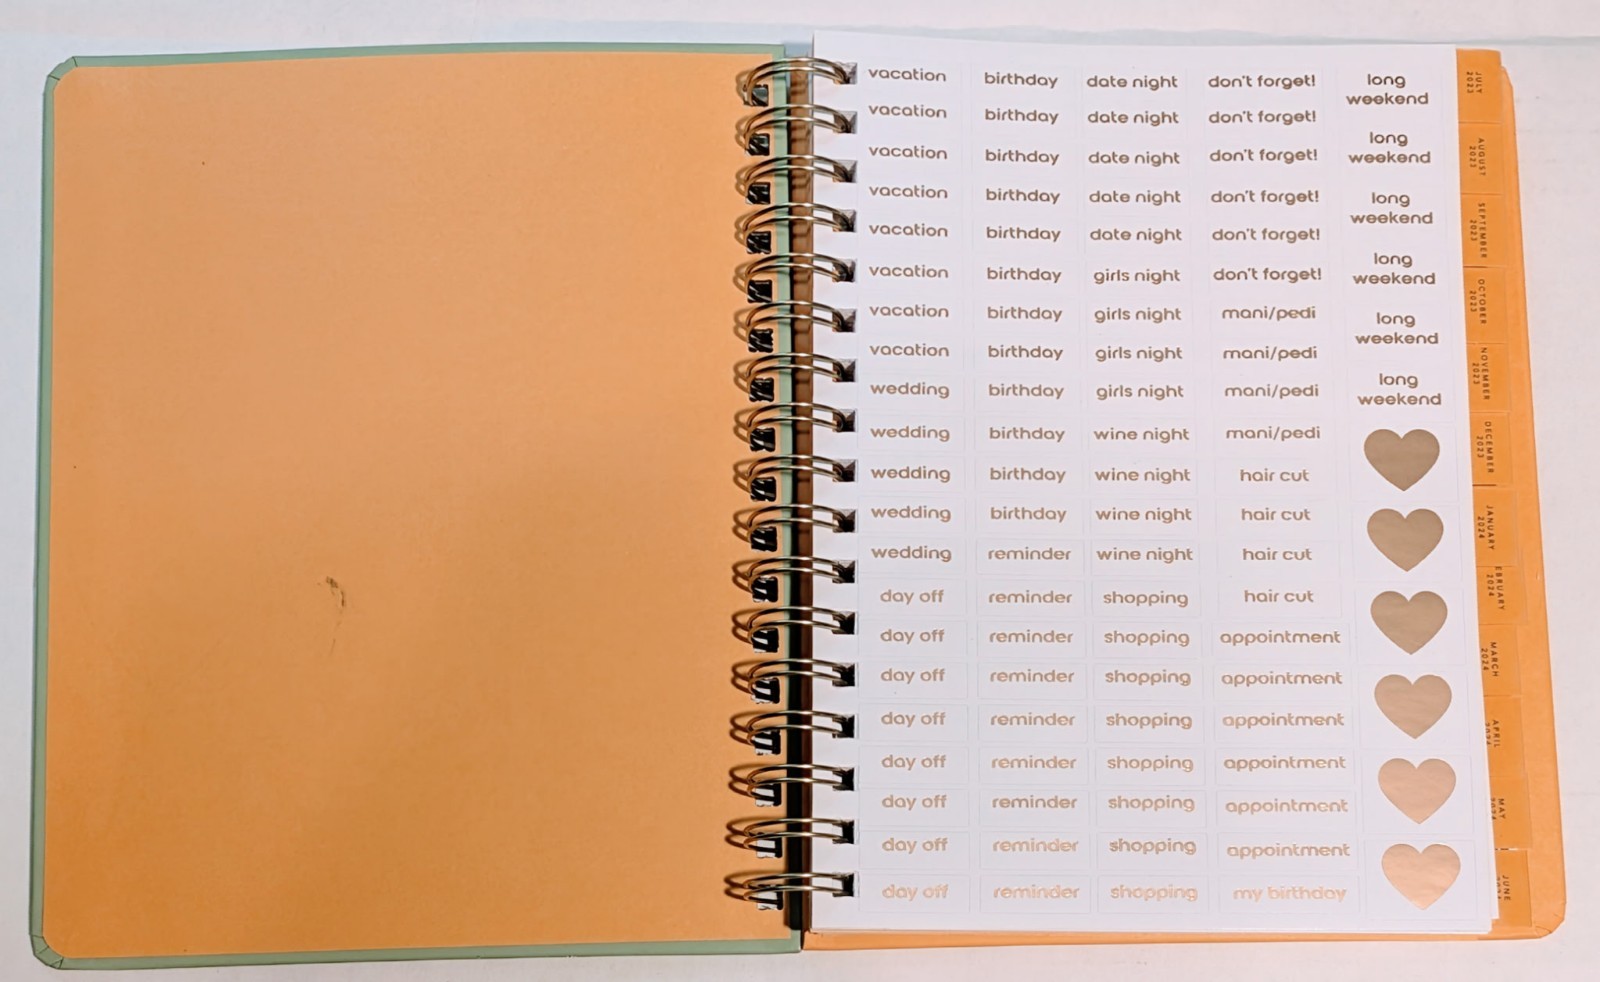 vacation
vacation
vacation
vacation
vacation
vacation
vacation
vacation
wedding
wedding
wedding
wedding
wedding
day off
day off
day off
day off
day off
day off
day off
day off
birthday
birthday
birthday
birthday
birthday
birthday
birthday
birthday
birthday
birthday
birthday
birthday
reminder
reminder
reminder
reminder
reminder
reminder
reminder
reminder
reminder
date night
date night
date night
date night
date night
girls night
girls night
girls night
girls night
wine night
wine night
wine night
wine night
shopping
shopping
shopping
shopping
shopping
shopping
shopping
shopping
don't forget!
don't forget!
don't forget!
don't forget!
don't forget!
don't forget!
mani/pedi
mani/pedi
mani/pedi
mani/pedi
hair cut
hair cut
hair cut
hair cut
appointment
appointment
appointment
appointment
appointment
appointment
my birthday
long
weekend
long
weekend
long
weekend
long
weekend
long
weekend
long
weekend
JULY
2023
AUGUST
2023
SEPTEMBER
2023
OCTOBER
2023
NOVEMBER
2023
DECEMBER
2023
JANUARY
2024
EBRUARY
2024
MARCH
2024
APRIL
2024
MAY
2024
JUNE